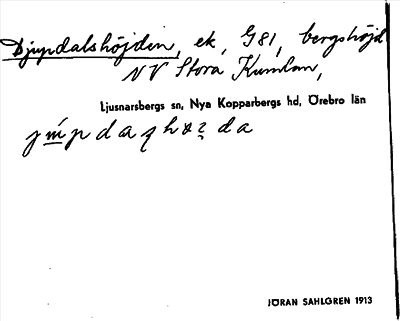 Djupdalshöjden, ek, G81, bergshöjd
NV Stora Kumlan,
Ljusnarsbergs sn, Nya Kopparbergs hd, Örebro län
JÖRAN SAHLGREN 1913